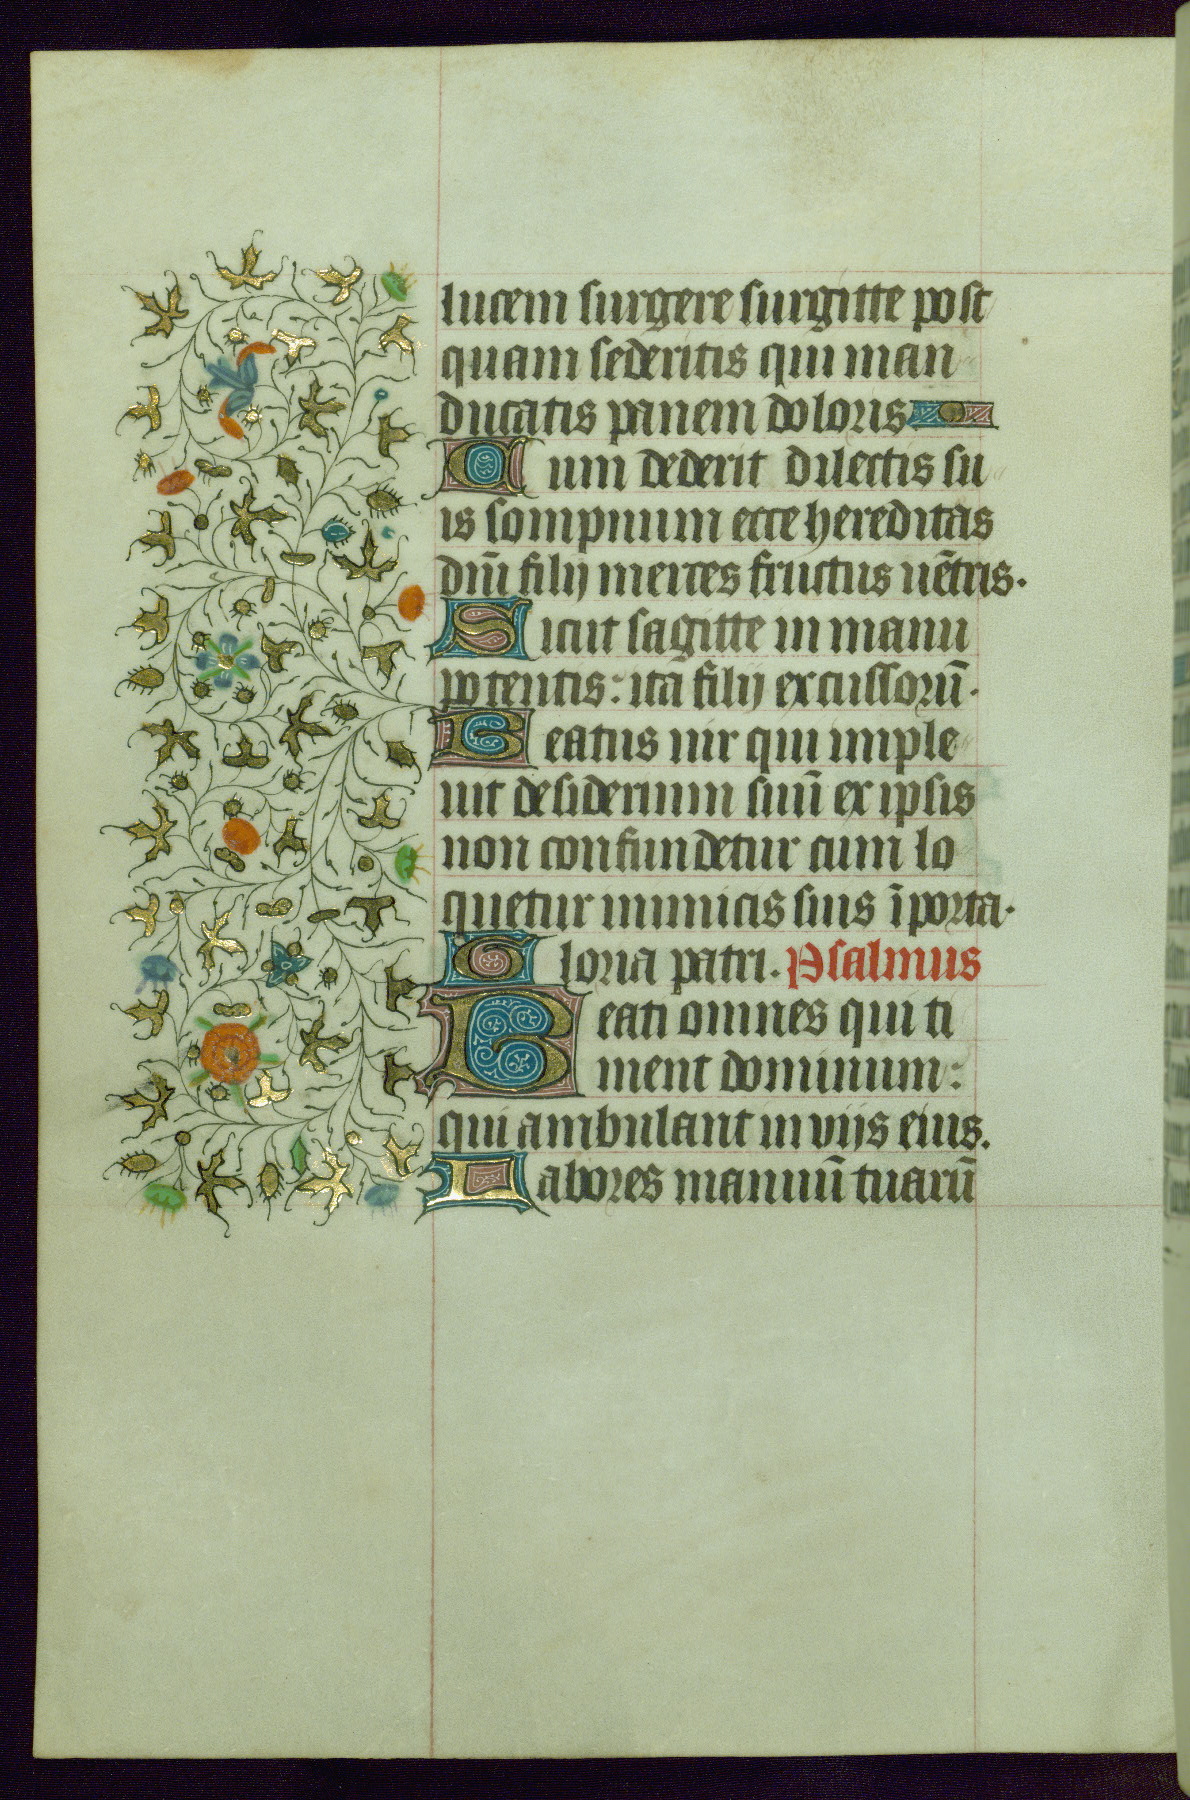 lucem surgere surgitte post
quam sederitis qui man
ducatis panem doloris
Cum dederit dilectis su
is sompnum ecce hereditas
dm̄ filij merces fructus uētris.
Sicut sagitte in manu
potentis: ita filij excussorū.
Beatus uir qui imple
uit desiderium suū ex ipsis
non confundetur cum lo
quetur inimicis suis ī porta.
Gloria patri. Psalmus
Beati omnes qui ti
ment dominum:
qui ambulant in vijs eius.
Labores manuū tuarū